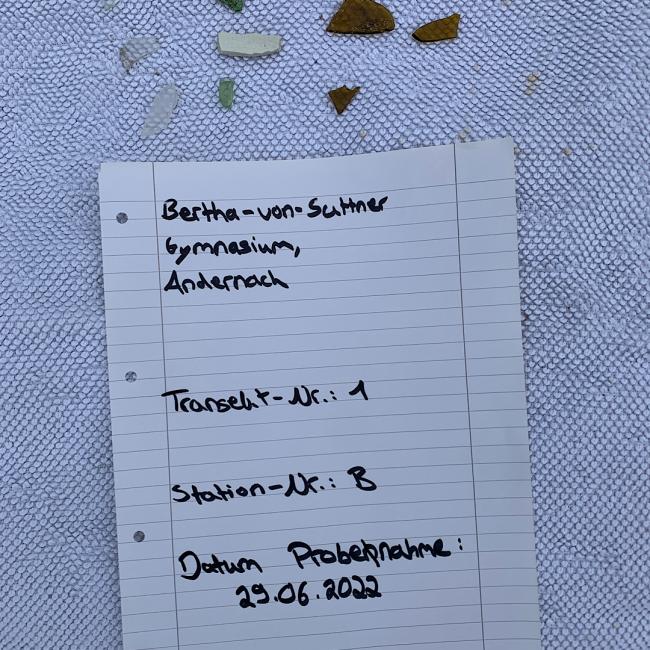 Bertha-von-Suttner
Gymnasium,
Andernach
Transekt-Nr.: 1
Station-Nr.: B
Datum Probepnahme:
29.06.2022